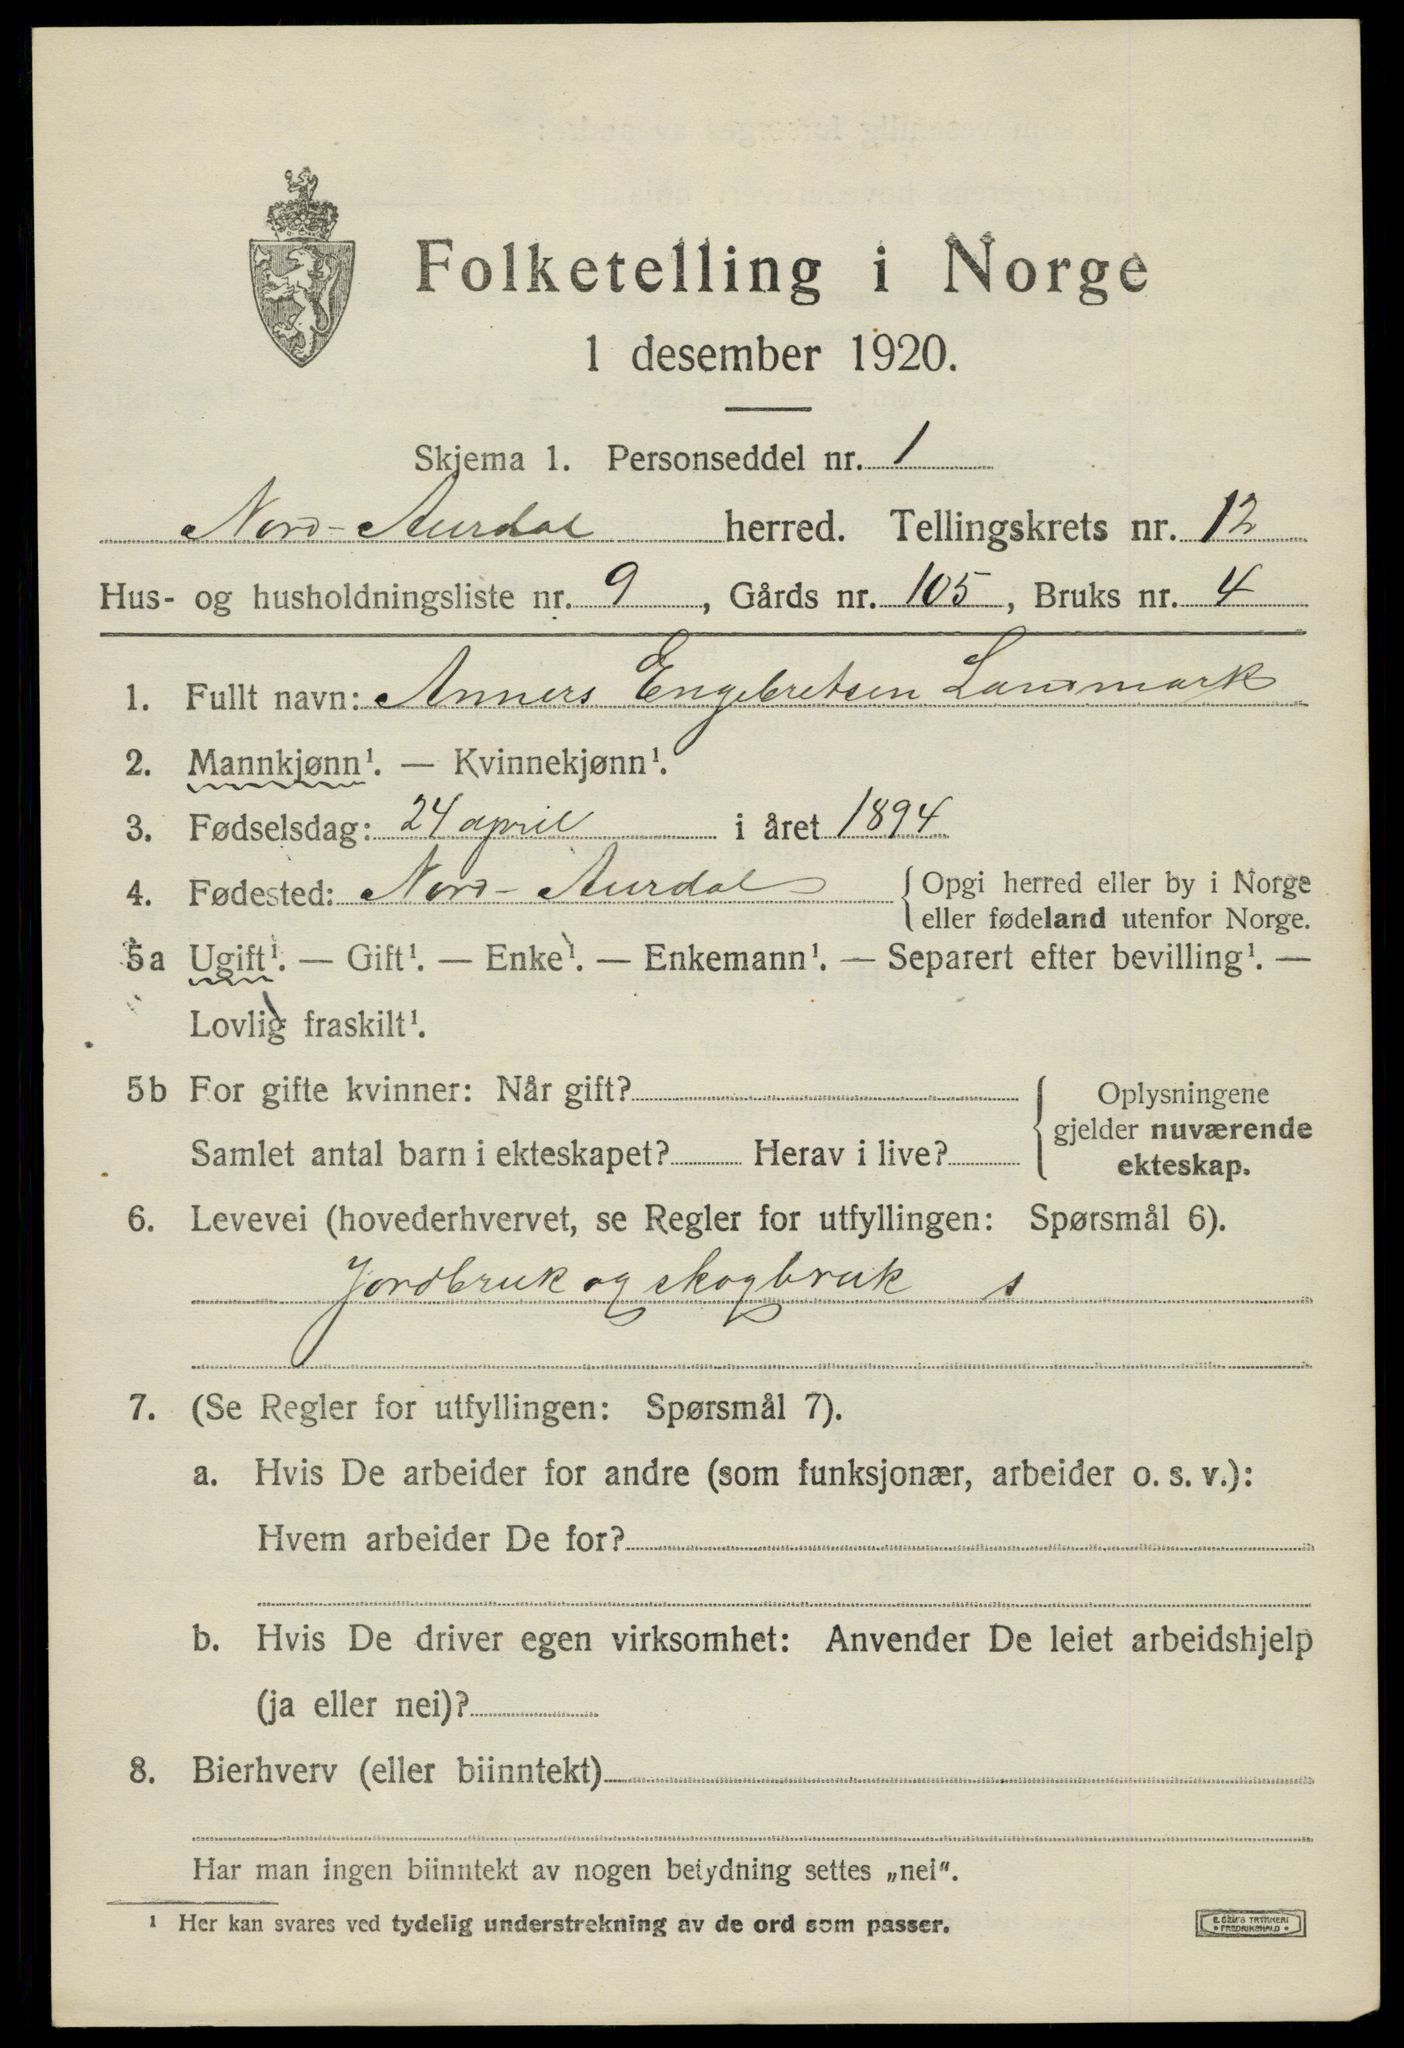 Folketelling i Norge
1 desember 1920.
Skjema 1. Personseddel nr. 1
Nord-Aurdal herred. Tellingskrets nr. 12
Hus- og husholdningsliste nr. 9, Gårds nr. 105, Bruks nr. 4
1. Fullt navn: Anners Engebretsen Landmark
2. Mannkjønn¹. — Kvinnekjønn¹.
3. Fødselsdag: 24 april i året 1894
4. Fødested: Nord-Aurdal { Opgi herred eller by i Norge
eller fødeland utenfor Norge.
5a Ugift¹. — Gift¹. — Enke¹. — Enkemann¹. — Separert efter bevilling¹. —
Lovlig fraskilt¹.
5b For gifte kvinner: Når gift? { Oplysningene
gjelder nuværende
Samlet antal barn i ekteskapet? Herav i live? ekteskap.
6. Levevei (hovederhvervet, se Regler for utfyllingen: Spørsmål 6).
Jordbruk og skogbruk s
7. (Se Regler for utfyllingen: Spørsmål 7).
a. Hvis De arbeider for andre (som funksjonær, arbeider o. s. v.):
Hvem arbeider De for?
b. Hvis De driver egen virksomhet: Anvender De leiet arbeidshjelp
(ja eller nei)?
8. Bierhverv (eller biinntekt)
Har man ingen biinntekt av nogen betydning settes „nei“.
¹ Her kan svares ved tydelig understrekning av de ord som passer.
E. SEM'S TRYKKERI
FREDRIKSHALD